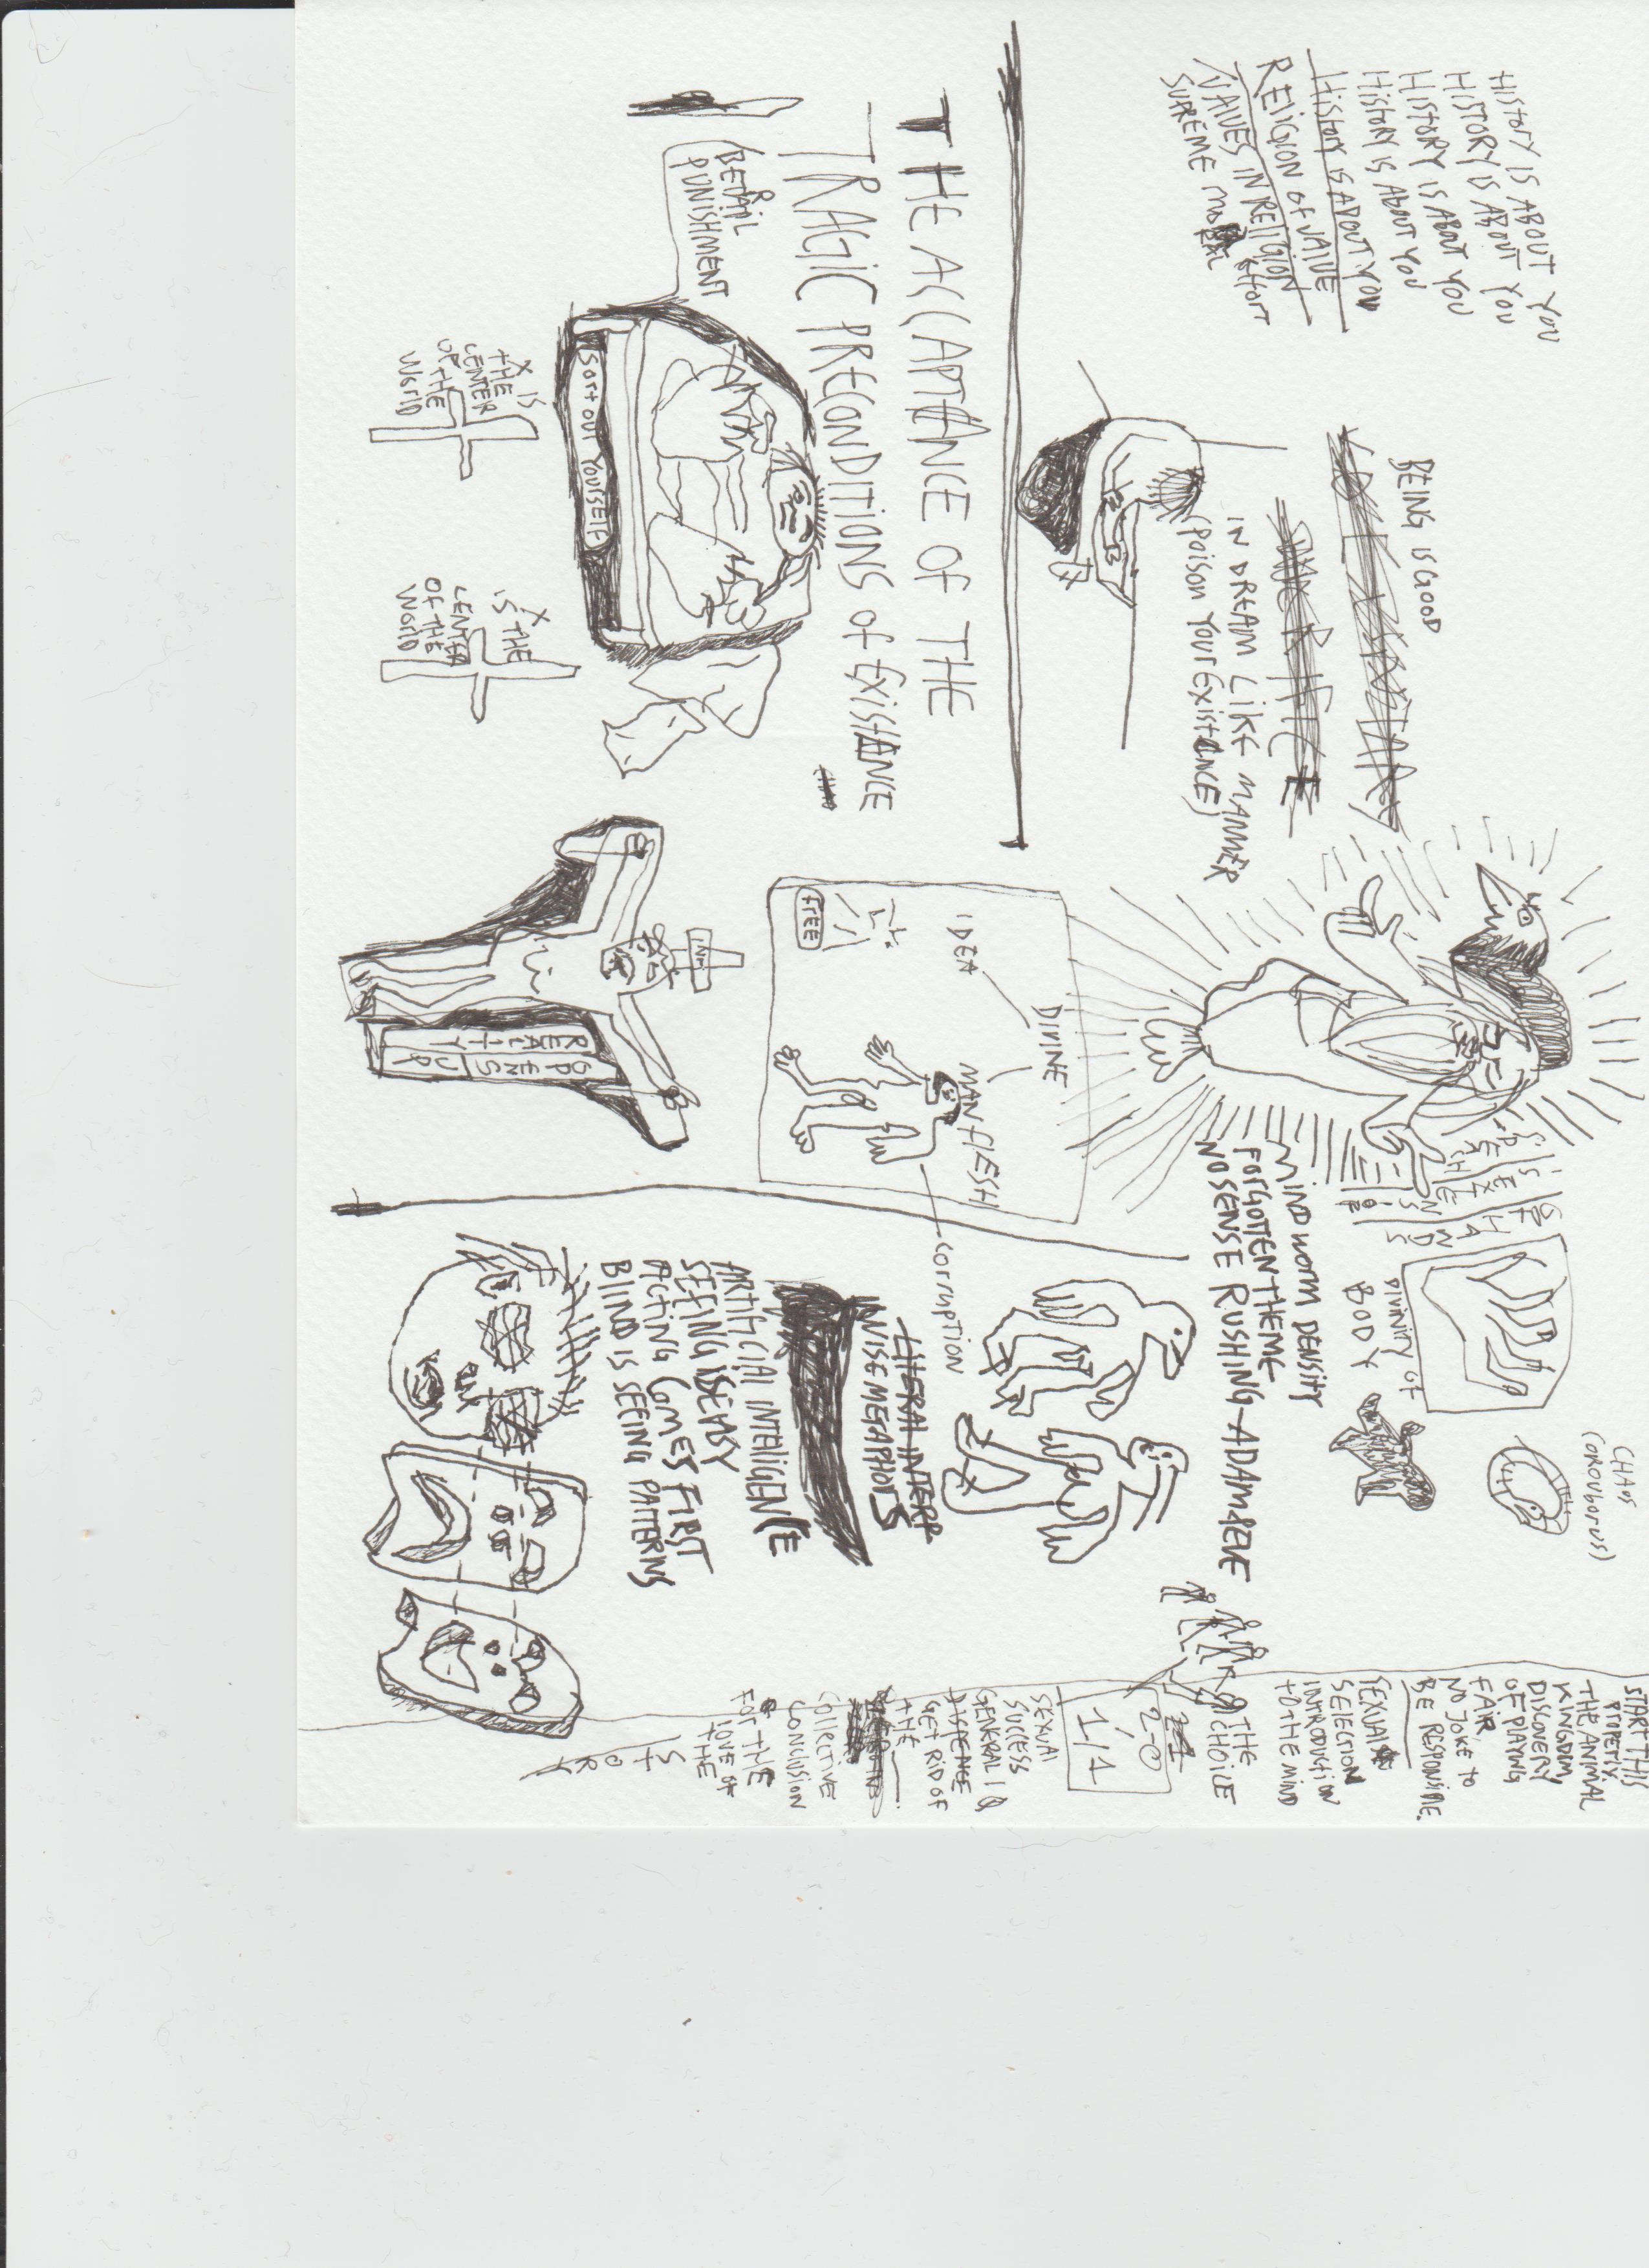 HISTORY IS ABOUT YOU
HISTORY IS ABOUT YOU
HISTORY IS ABOUT YOU
HISTORY IS ABOUT YOU
HISTORY IS ABOUT YOU
RELIGION OF VALUE
VALUES IN RELIGION
SUPREME MORAL EFFORT
BEING IS GOOD
IN DREAM LIKE MANNER
(POISON YOUR EXISTANCE)
THE ACCAPTANCE OF THE
TRAGIC PRECONDITIONS OF EXISTANCE
BETRAIL
PUNISHMENT
SORT OUT YOURSELF
X IS
THE
CENTER
OF THE
WORLD
X
IS THE
CENTER
OF THE
WORLD
CHAOS
(OROUBORUS)
DIVINITY OF
BODY
MIND WORM DENSITY
FORGOTTEN THEME
NO SENSE RUSHING-ADAM & EVE
IDEA
DIVINE
MAN FLESH
FREE
CORRUPTION
INRI
REALITY
OPENS
UP
LITERAL INTERP
IN WISE METAPHORS
ARTIFICIAL INTELLIGENCE
SEEING IS EASY
ACTING COMES FIRST
BLIND IS SEEING PATTERNS
START THIS
PROPERTY
THE ANIMAL
KINGDOM,
DISCOVERY
OF PLAYING
FAIR,
NO JOKE TO
BE RESPONSIBLE.
SEXUAL
SELECTION
INTRODUCTION
TO THE MIND
THE
CHOICE
2-0
1/1
SEXUAL
SUCCESS
GENERAL IQ
GET RID OF
THE
COLLECTIVE
CONCLUSION
FOR THE
LOVE OF
THE
STORY